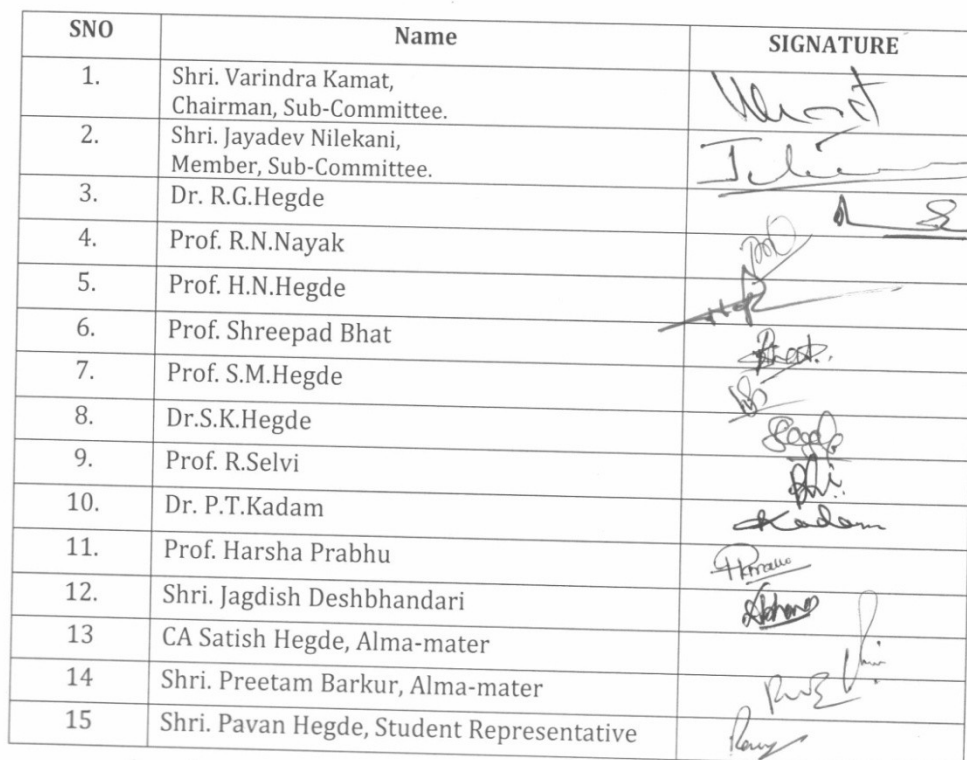 SNO Name SIGNATURE
1. Shri. Varindra Kamat,
Chairman, Sub-Committee.
2. Shri. Jayadev Nilekani,
Member, Sub-Committee.
3. Dr. R.G.Hegde
4. Prof. R.N.Nayak
5. Prof. H.N.Hegde
6. Prof. Shreepad Bhat
7. Prof. S.M.Hegde
8. Dr.S.K.Hegde
9. Prof. R.Selvi
10. Dr. P.T.Kadam Kadam
11. Prof. Harsha Prabhu
12. Shri. Jagdish Deshbhandari
13 CA Satish Hegde, Alma-mater
14 Shri. Preetam Barkur, Alma-mater
15 Shri. Pavan Hegde, Student Representative